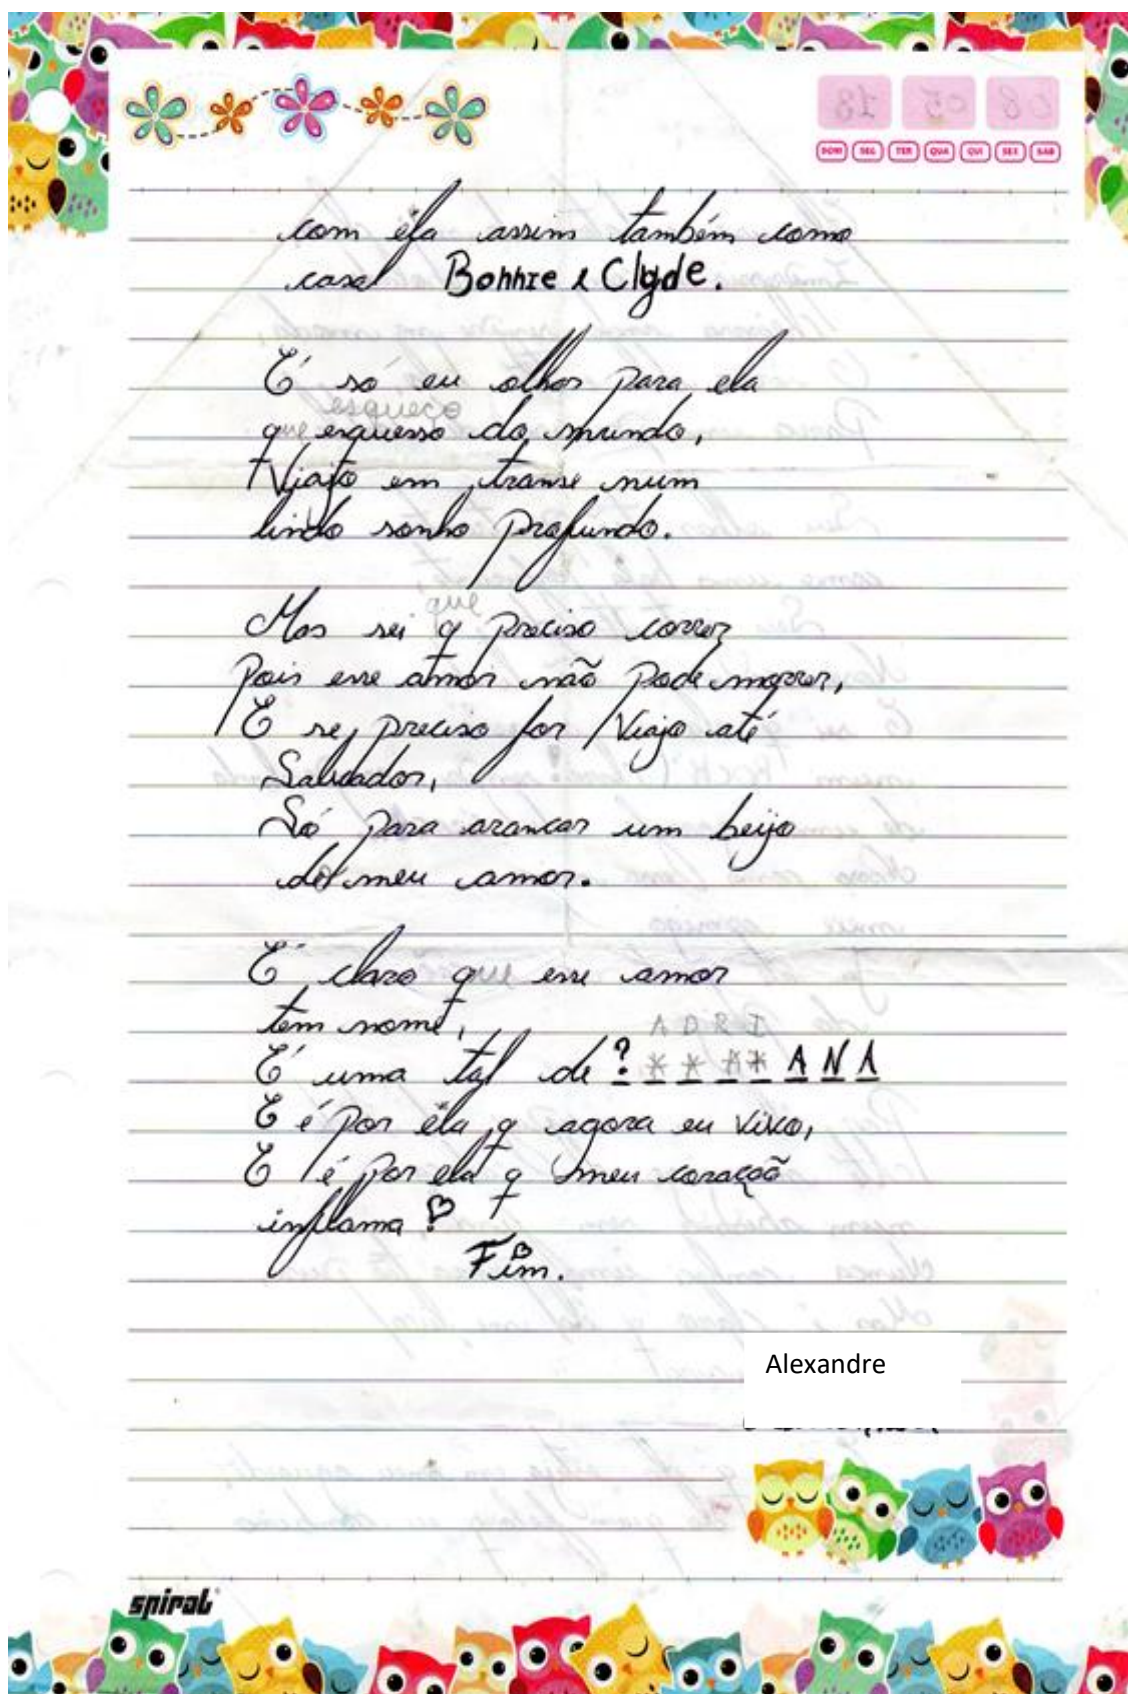 DOM SEG TER QUA QUI SEX SAB
com ela assim também como
casal Bonnie e Clyde.
É só eu olhar para ela
esqueço
que esquesso do mundo,
Viajo em transe num
lindo sonho profundo.
que
Mas sei q preciso correr
Pois esse amor não pode morrer,
E se preciso for Viajo até
Salvador,
Só para arancar um beijo
do meu amor.
É claro que esse amor
tem nome,
A D R I
É uma tal de ? * * * * A N A
E é por ela q agora eu vivo,
E é por ela q meu coração
inflama
Fim.
Alexandre
spiral